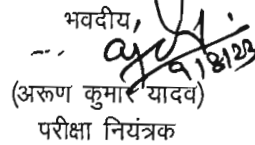 भवदीय,
9/8/23
(अरुण कुमार यादव)
परीक्षा नियंत्रक